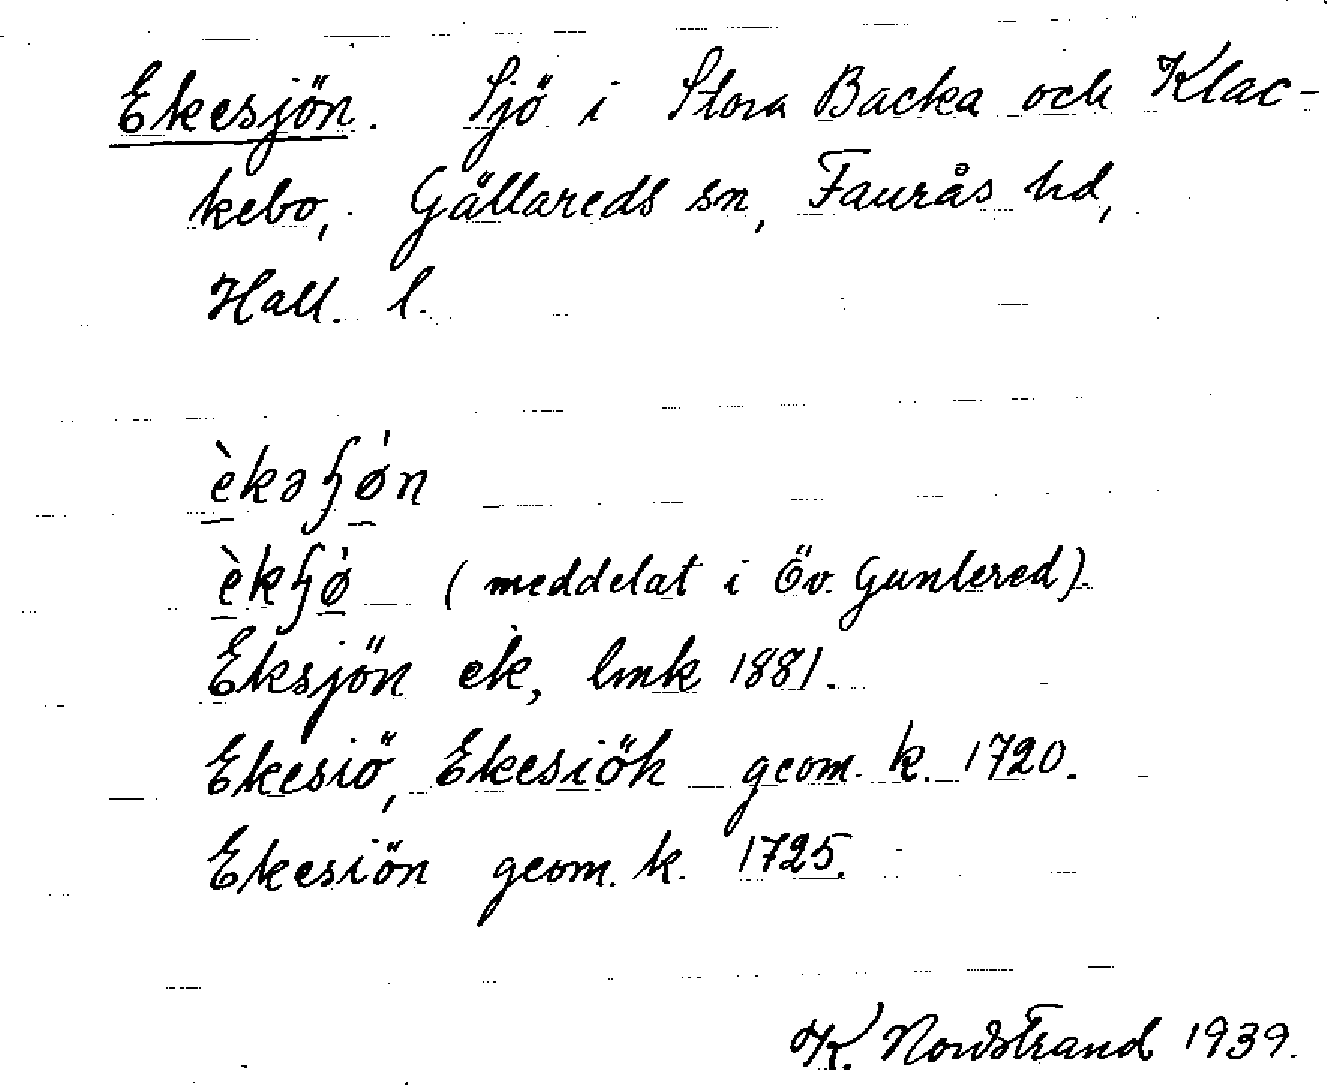 Ekesjön. Sjö i Stora Backa och Klac-
kebo, Gällareds sn, Faurås hd,
Hall. l.
èkəɧø̀n
èkɧø̀ (meddelat i Öv. Guntered).
Eksjön ek, lmk 1881.
Ekesiö, Ekesiöh geom. k. 1720.
Ekesiön geom. k. 1725.
K. Nordstrand 1939.